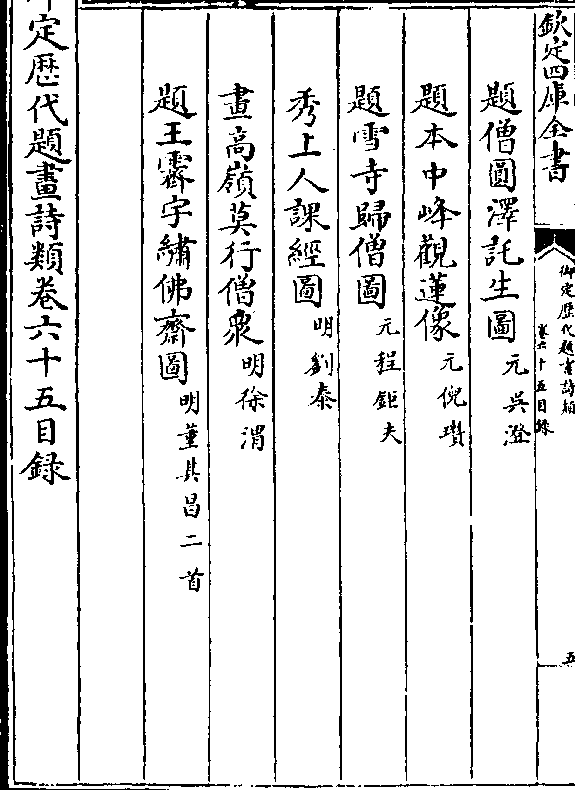 欽定四庫全書
御定歴代題畫詩類
卷六十五目録
五
題僧圓澤託生圖元吳澄
題本中峰觀蓮像元倪瓚
題雪寺歸僧圖元程鉅夫
秀上人課經圖明劉泰
畫高嶺莫行僧衆明徐渭
題王霽宇繡佛齋圖明董其昌二首
定歴代題畫詩類卷六十五目録